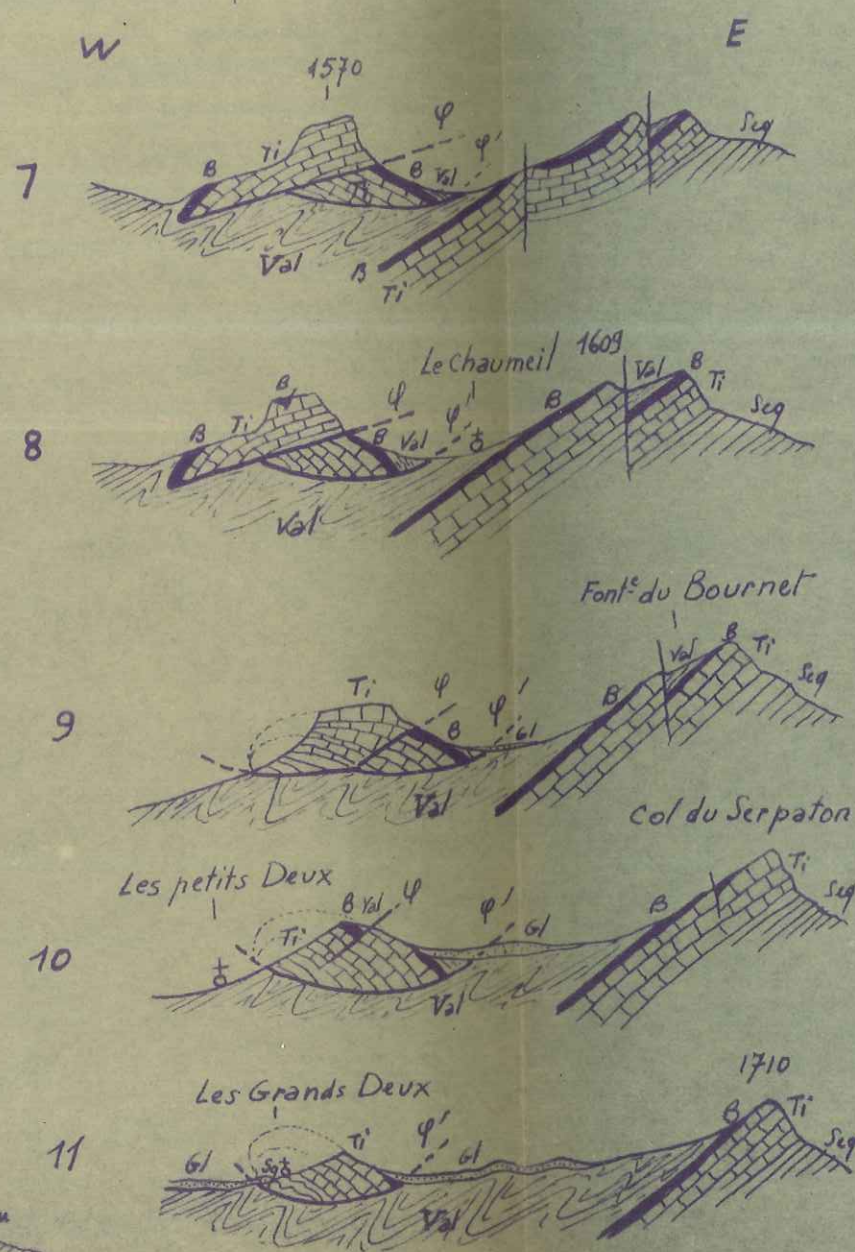 W E
1570
7 B Ti φ B Val φ' Seq
Ti
Val B Ti
Le Chaumeil 1609
8 B B Ti φ B Val φ' B Val B Ti Seq
Val
Font^e du Bournet
9 Ti φ B φ' Gl B Val B Ti Seq
Val
Col du Serpaton
Les petits Deux
10 Ti B Val φ φ' Gl B Ti Seq
Val
Les Grands Deux 1710
11 Gl Ti φ' Gl B Ti Seq
Val